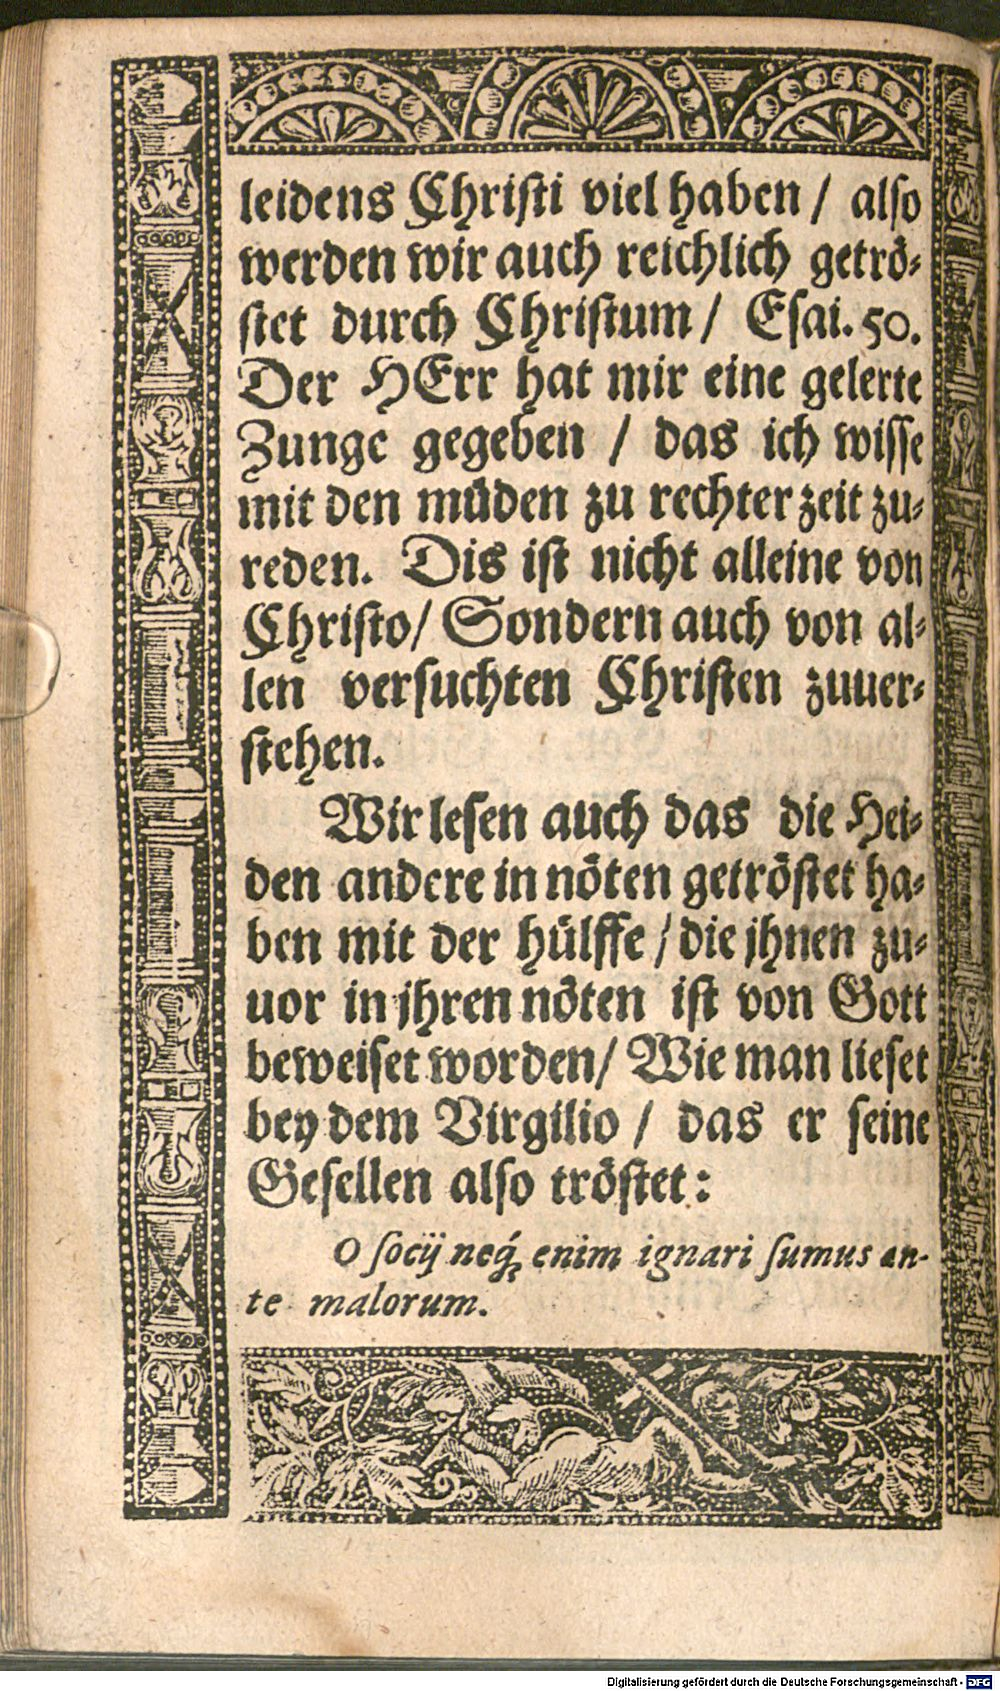 leidens Christi viel haben / also
werden wir auch reichlich getrö⸗
stet durch Christum / Esai. 50.
Der HErr hat mir eine gelerte
Zunge gegeben / das ich wisse
mit den müden zu rechter zeit zu⸗
reden. Dis ist nicht alleine von
Christo / Sondern auch von al⸗
len versuchten Christen zuuer⸗
stehen.
Wir lesen auch das die Hei⸗
den andere in nöten getröstet ha⸗
ben mit der hülffe / die jhnen zu⸗
uor in jhren nöten ist von Gott
beweiset worden / Wie man lieset
bey dem Virgilio / das er seine
Gesellen also tröstet:
O socij neq́; enim ignari sumus an-
te malorum.
Digitalisierung gefördert durch die Deutsche Forschungsgemeinschaft - DFG